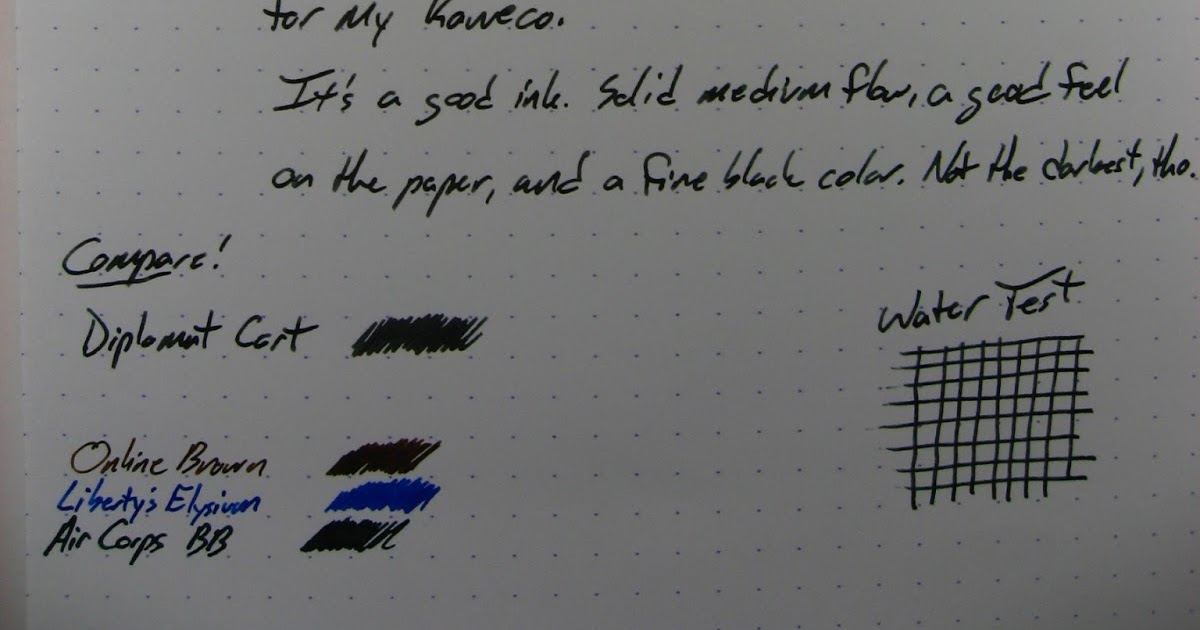 for my Kaweco.
It's a good ink. Solid medium flow, a good feel
on the paper, and a fine black color. Not the darkest, tho.
Compare!
Water Test
Diplomat Cart
Online Brown
Liberty's Elysium
Air Corps BB